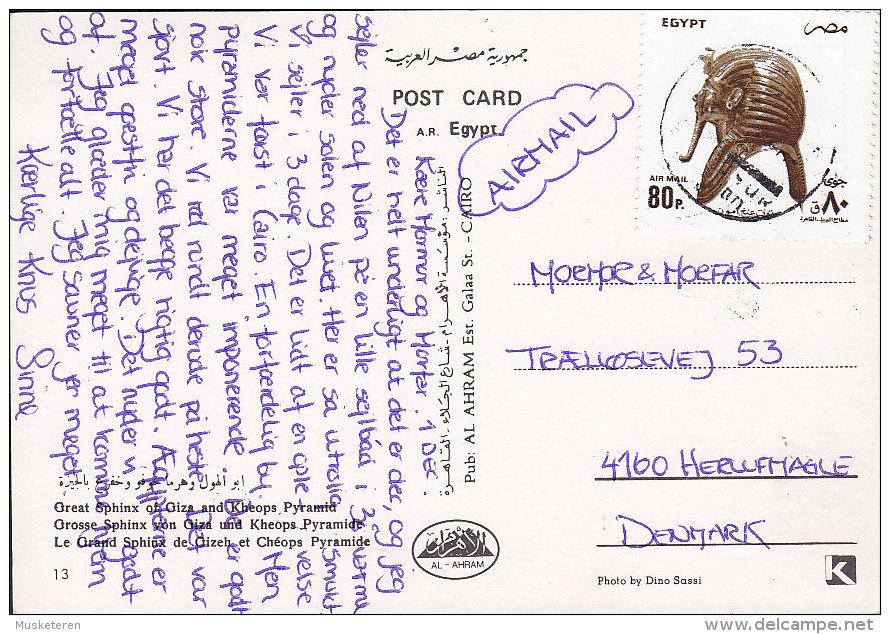 EGYPT
مصر
AIR MAIL
80 P.
٨٠
جمهورية مصر العربية
POST CARD
A.R. Egypt.
AIRMAIL
Kære Mormor og Morfar. 1 Dec.
Det er helt underligt at det er dec, og jeg
sejler ned af Nilen på en lille sejlbåd i 30° varme
og nyder solen og livet. Her er så utrolig smukt
Vi sejler i 3 dage. Det er lidt af en oplevelse
Vi var først i Cairo. En forfærdelig by. Men
pyramiderne var meget imponerende. De er godt
nok store. Vi red rundt derude på heste. Det var
sjovt. Vi har det begge rigtig godt. Ægypterne er
meget gæstfri og dejlige. Det nyder vi godt
af. Jeg glæder mig meget til at komme hjem
og fortælle alt. Jeg savner jer meget.
Kærlige Knus Sinne
الناشر: مؤسسة الأهرام - شارع الجلاء - القاهرة
Pub: AL AHRAM Est. Galaa St. - CAIRO
MORMOR & MORFAR
TRÆLLOSEVEJ 53
4160 HERLUFMAGLE
DENMARK
أبو الهول وهرما خوفو وخفرع بالجيزة
Great Sphinx of Giza and Kheops Pyramid
Grosse Sphinx von Giza und Kheops Pyramide
Le Grand Sphinx de Gizeh et Chéops Pyramide
13
الأهرام
AL - AHRAM
Photo by Dino Sassi
K
Musketeren
delcampe.net